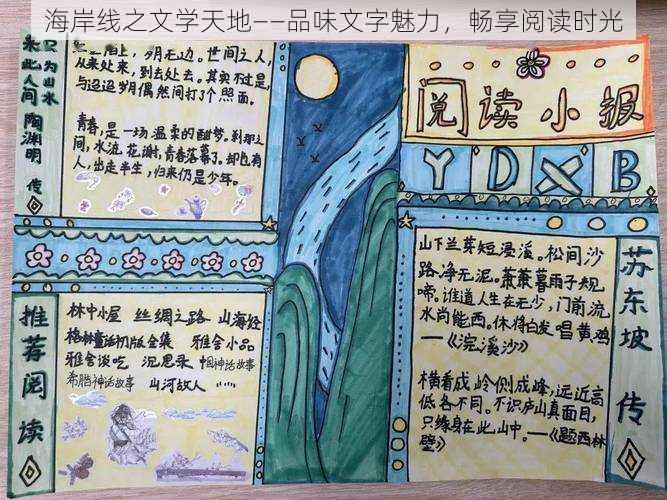 海岸线之文学天地——品味文字魅力，畅享阅读时光
只为山水
来此人间
陶渊明 传
岁月无边。世间之人，
从来处来，到去处去。其实不过是，
与迢迢岁月偶然间打了个照面。
青春，是一场温柔的酣梦。刹那之
间，水流花谢，青春落幕了。却也有
人，出走半生，归来仍是少年。
推荐阅读
林中小屋 丝绸之路 山海经
格林童话初版全集 雅舍小品
雅舍谈吃 沉思录 中国神话故事
希腊神话故事 山河故人 ......
阅读小报
YDXB
山下兰芽短浸溪。松间沙
路净无泥。萧萧暮雨子规
啼。谁道人生在无少，门前流
水尚能西。休将白发唱黄鸡
——《浣溪沙》
横看成岭侧成峰，远近高
低各不同。不识庐山真面目，
只缘身在此山中。——《题西林
壁》
苏东坡 传